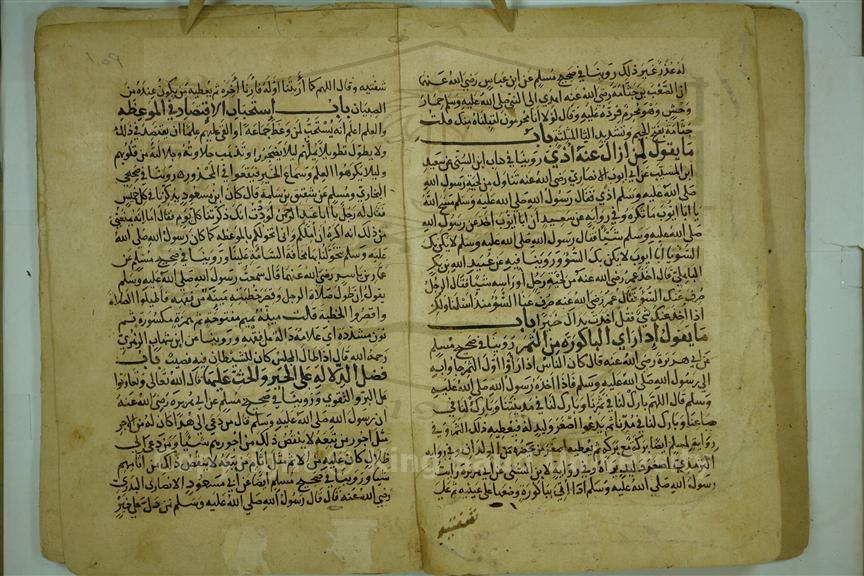 له عذر غير ذلك روينا في صحيح مسلم عن ابن عباس رضي الله عنهما
ان الصعب بن جثامة رضي الله عنه اهدى الى النبي صلى الله عليه وسلم حمار
وحش وهو محرم فرده عليه وقال لولا انا محرمون لقبلناه منك قلت
جثامة بفتح الجيم وتشديد الثا المثلثة باب
ما يقول لمن ازال عنه اذى روينا في كتاب ابن السني عن سعيد
ابن المسيب عن ابي ايوب الانصاري رضي الله عنه تناول من لحية رسول الله
صلى الله عليه وسلم اذى فقال رسول الله صلى الله عليه وسلم مسح الله عنك
يا ابا ايوب ما تكره وفي رواية عن سعيد ان ابا ايوب اخذ عن رسول الله
صلى الله عليه وسلم شيئا فقال رسول الله صلى الله عليه وسلم لا يكن بك
السوء يا ابا ايوب لا يكن بك السوء وروينا فيه عن عبد الله بن بكر
الباهلي قال اخذ عمر رضي الله عنه من لحية رجل او راسه شيئا فقال الرجل
صرف الله عنك السوء فقال عمر رضي الله عنه صرف عنا السوء منذ اسلمنا ولكن
اذا اخذ عنك شي فقل اخذت يداك خيرا باب
ما يقول اذا راى الباكورة من الثمر روينا في صحيح مسلم
عن ابي هريرة رضي الله عنه قال كان الناس اذا راوا اول الثمر جاوا به
الى رسول الله صلى الله عليه وسلم فاذا اخذه رسول الله صلى الله عليه
وسلم قال اللهم بارك لنا في ثمرنا وبارك لنا في مدينتنا وبارك لنا في
صاعنا وبارك لنا في مدنا ثم يدعو اصغر وليد له فيعطيه ذلك الثمر وفي
رواية لمسلم ايضا بركة مع بركة ثم يعطيه اصغر من يحضره من الولدان وفي رواية
الترمذي اصغر وليد يراه وفي رواية لابن السني عن ابي هريرة رايت
رسول الله صلى الله عليه وسلم اذا اتي بباكورة وضعها على عينيه ثم على
شفتيه
شفتيه وقال اللهم كما أريتنا اوله فارنا آخره ثم يعطيه من يكون عنده من
الصبيان باب استحباب الاقتصاد في الموعظة
والعلم اعلم انه يستحب لمن وعظ جماعة او القى عليهم علما ان يقتصد في ذلك
ولا يطول تطويلا يملهم ليلا يضجروا وتذهب حلاوته وجلالته من قلوبهم
وليلا يكرهوا العلم وسماع الخير فيقعوا في المحذور روينا في صحيحي
البخاري ومسلم عن شقيق بن سلمة قال كان ابن مسعود يذكرنا في كل خميس
فقال له رجل يا ابا عبد الرحمن لوددت انك ذكرتنا كل يوم فقال اما انه يمنعني
من ذلك انه اكره ان املكم واني اتخولكم بالموعظة كما كان رسول الله صلى الله
عليه وسلم يتخولنا بها مخافة السآمة علينا وروينا في صحيح مسلم عن
عمار بن ياسر رضي الله عنهما قال سمعت رسول الله صلى الله عليه وسلم
يقول ان طول صلاة الرجل وقصر خطبته مئنة من فقهه فاطيلوا الصلاة
واقصروا الخطبة قلت مئنة بميم مفتوحة ثم همزة مكسورة ثم
نون مشددة اي علامة دالة على فقهه وروينا عن ابن شهاب الزهري
رحمه الله قال اذا طال المجلس كان للشيطان فيه نصيب باب
فضل الدلالة على الخير والحث عليها قال الله تعالى وتعاونوا
على البر والتقوى وروينا في صحيح مسلم عن ابي هريرة رضي الله عنه
ان رسول الله صلى الله عليه وسلم قال من دعى الى هدا كان له من الاجر
مثل اجور من تبعه لا ينقص ذلك من اجورهم شيئا ومن دعى الى
ضلالة كان عليه من الاثم مثل آثام من تبعه لا ينقص ذلك من آثامهم
شيا وروينا في صحيح مسلم ايضا عن ابي مسعود الانصاري البدري
رضي الله عنه قال قال رسول الله صلى الله عليه وسلم من دل على خير